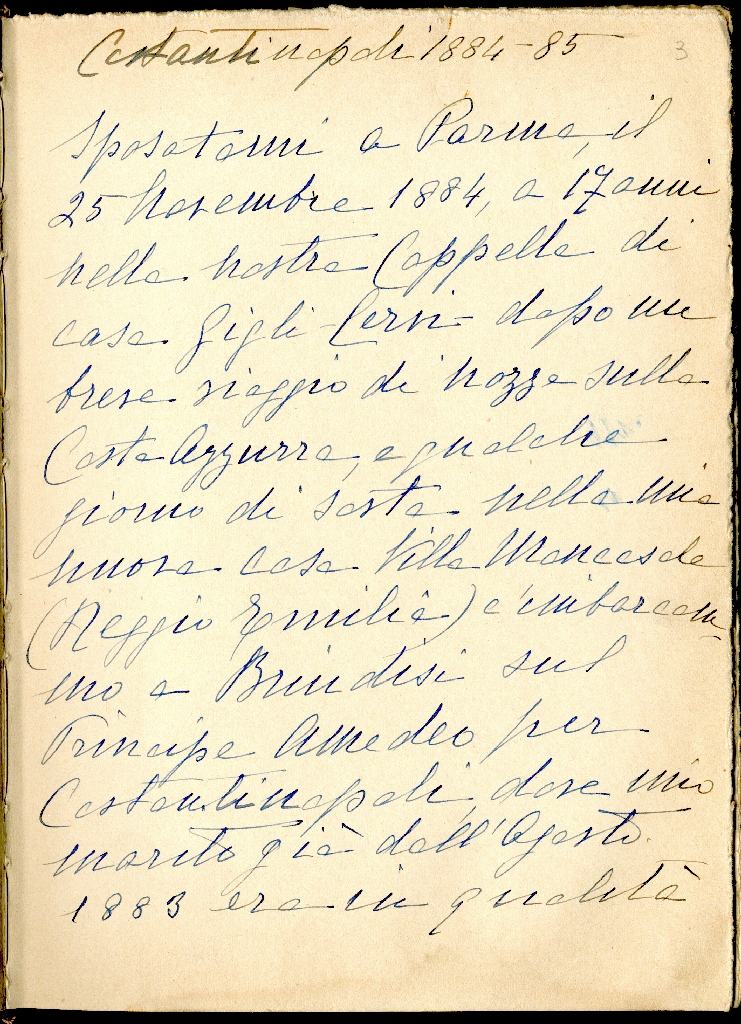 Costantinopoli 1884-85
3
Sposatami a Parma, il
25 Novembre 1884, a 17 anni
nella nostra Cappella di
casa Gigli-Cervi- dopo un
breve viaggio di nozze sulla
Costa Azzurra, e qualche
giorno di sosta nella mia
nuova casa Villa Mancasale
(Reggio Emilia) c'imbarcam-
mo a Brindisi sul
Principe Amedeo per
Costantinopoli, dove mio
marito già dall'Agosto
1883 era in qualità